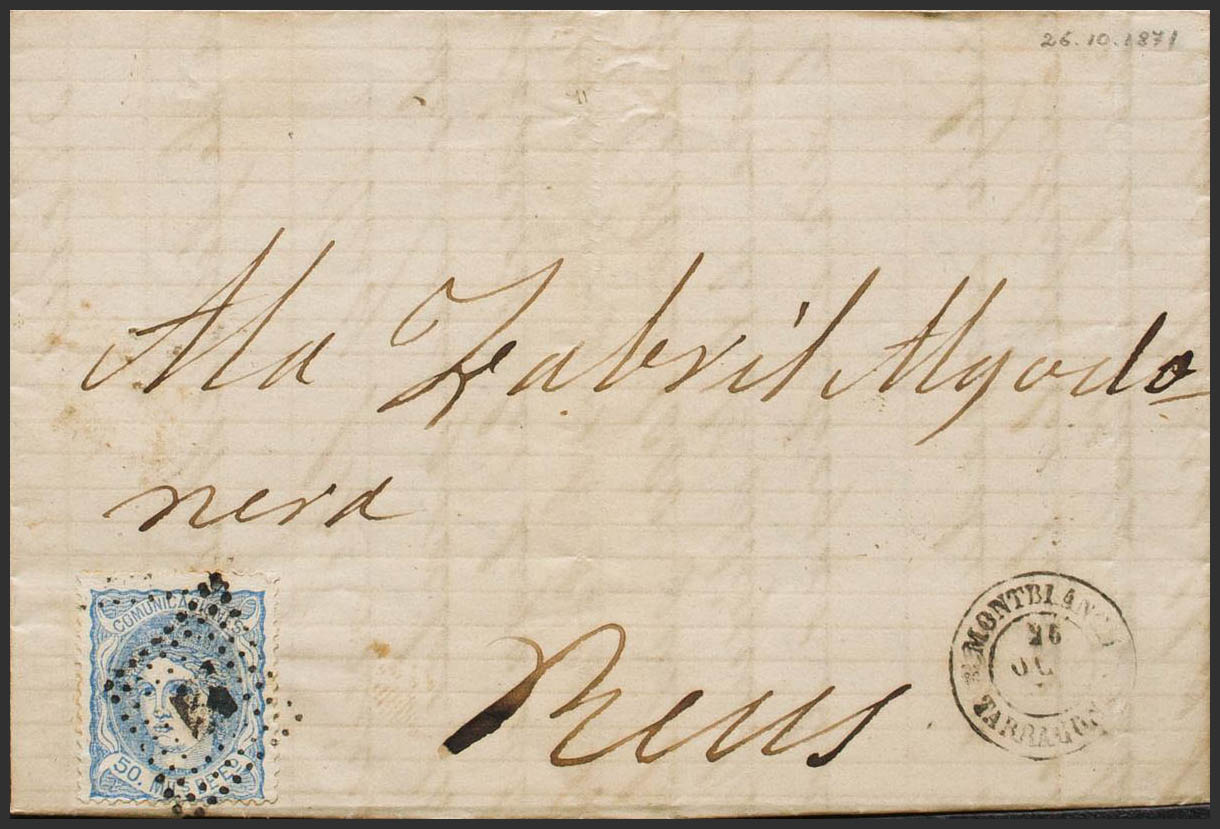 26.10.1871
A la Fabril Algodo
nera
COMUNICACIONES
50. MILS DE E.
Reus
MONTBLANCH
26
OC
TARRAGONA